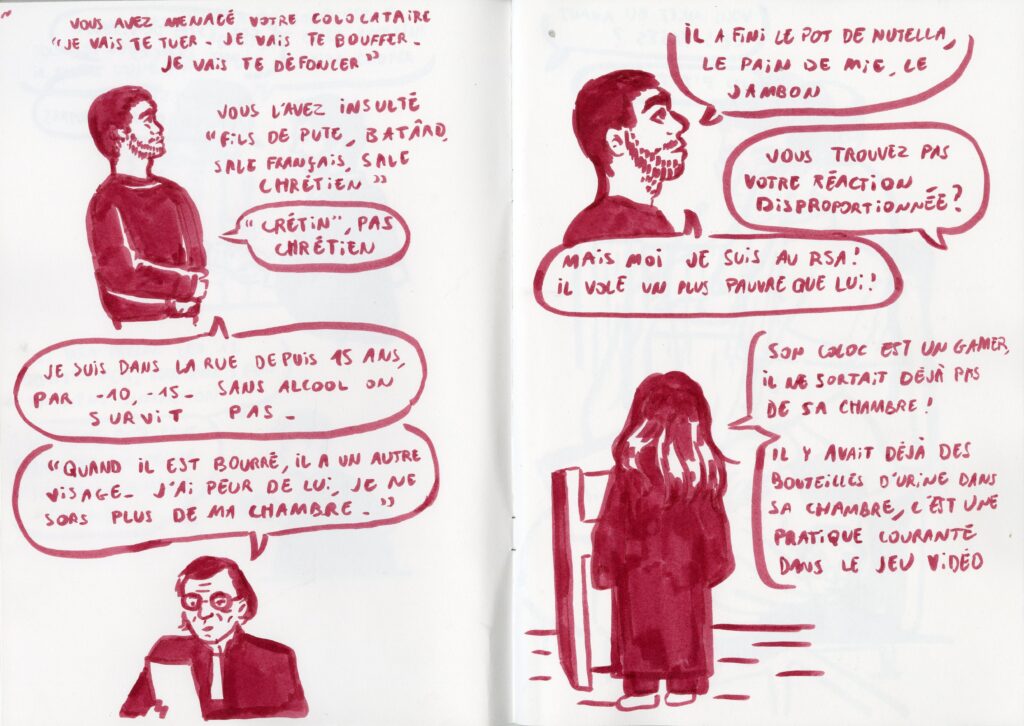 "
VOUS AVEZ MENACÉ VOTRE COLOCATAIRE
"JE VAIS TE TUER - JE VAIS TE BOUFFER -
JE VAIS TE DÉFONCER"
VOUS L'AVEZ INSULTÉ
"FILS DE PUTE, BATÂRD,
SALE FRANÇAIS, SALE
CHRÉTIEN"
"CRÉTIN", PAS
CHRÉTIEN
JE SUIS DANS LA RUE DEPUIS 15 ANS,
PAR -10, -15 - SANS ALCOOL ON
SURVIT PAS -
"QUAND IL EST BOURRÉ, IL A UN AUTRE
VISAGE - J'AI PEUR DE LUI, JE NE
SORS PLUS DE MA CHAMBRE - "
IL A FINI LE POT DE NUTELLA,
LE PAIN DE MIE, LE
JAMBON
VOUS TROUVEZ PAS
VOTRE RÉACTION
DISPROPORTIONNÉE?
MAIS MOI JE SUIS AU RSA!
IL VOLE UN PLUS PAUVRE QUE LUI!
SON COLOC EST UN GAMER,
IL NE SORTAIT DÉJÀ PAS
DE SA CHAMBRE!
IL Y AVAIT DÉJÀ DES
BOUTEILLES D'URINE DANS
SA CHAMBRE, C'EST UNE
PRATIQUE COURANTE
DANS LE JEU VIDÉO